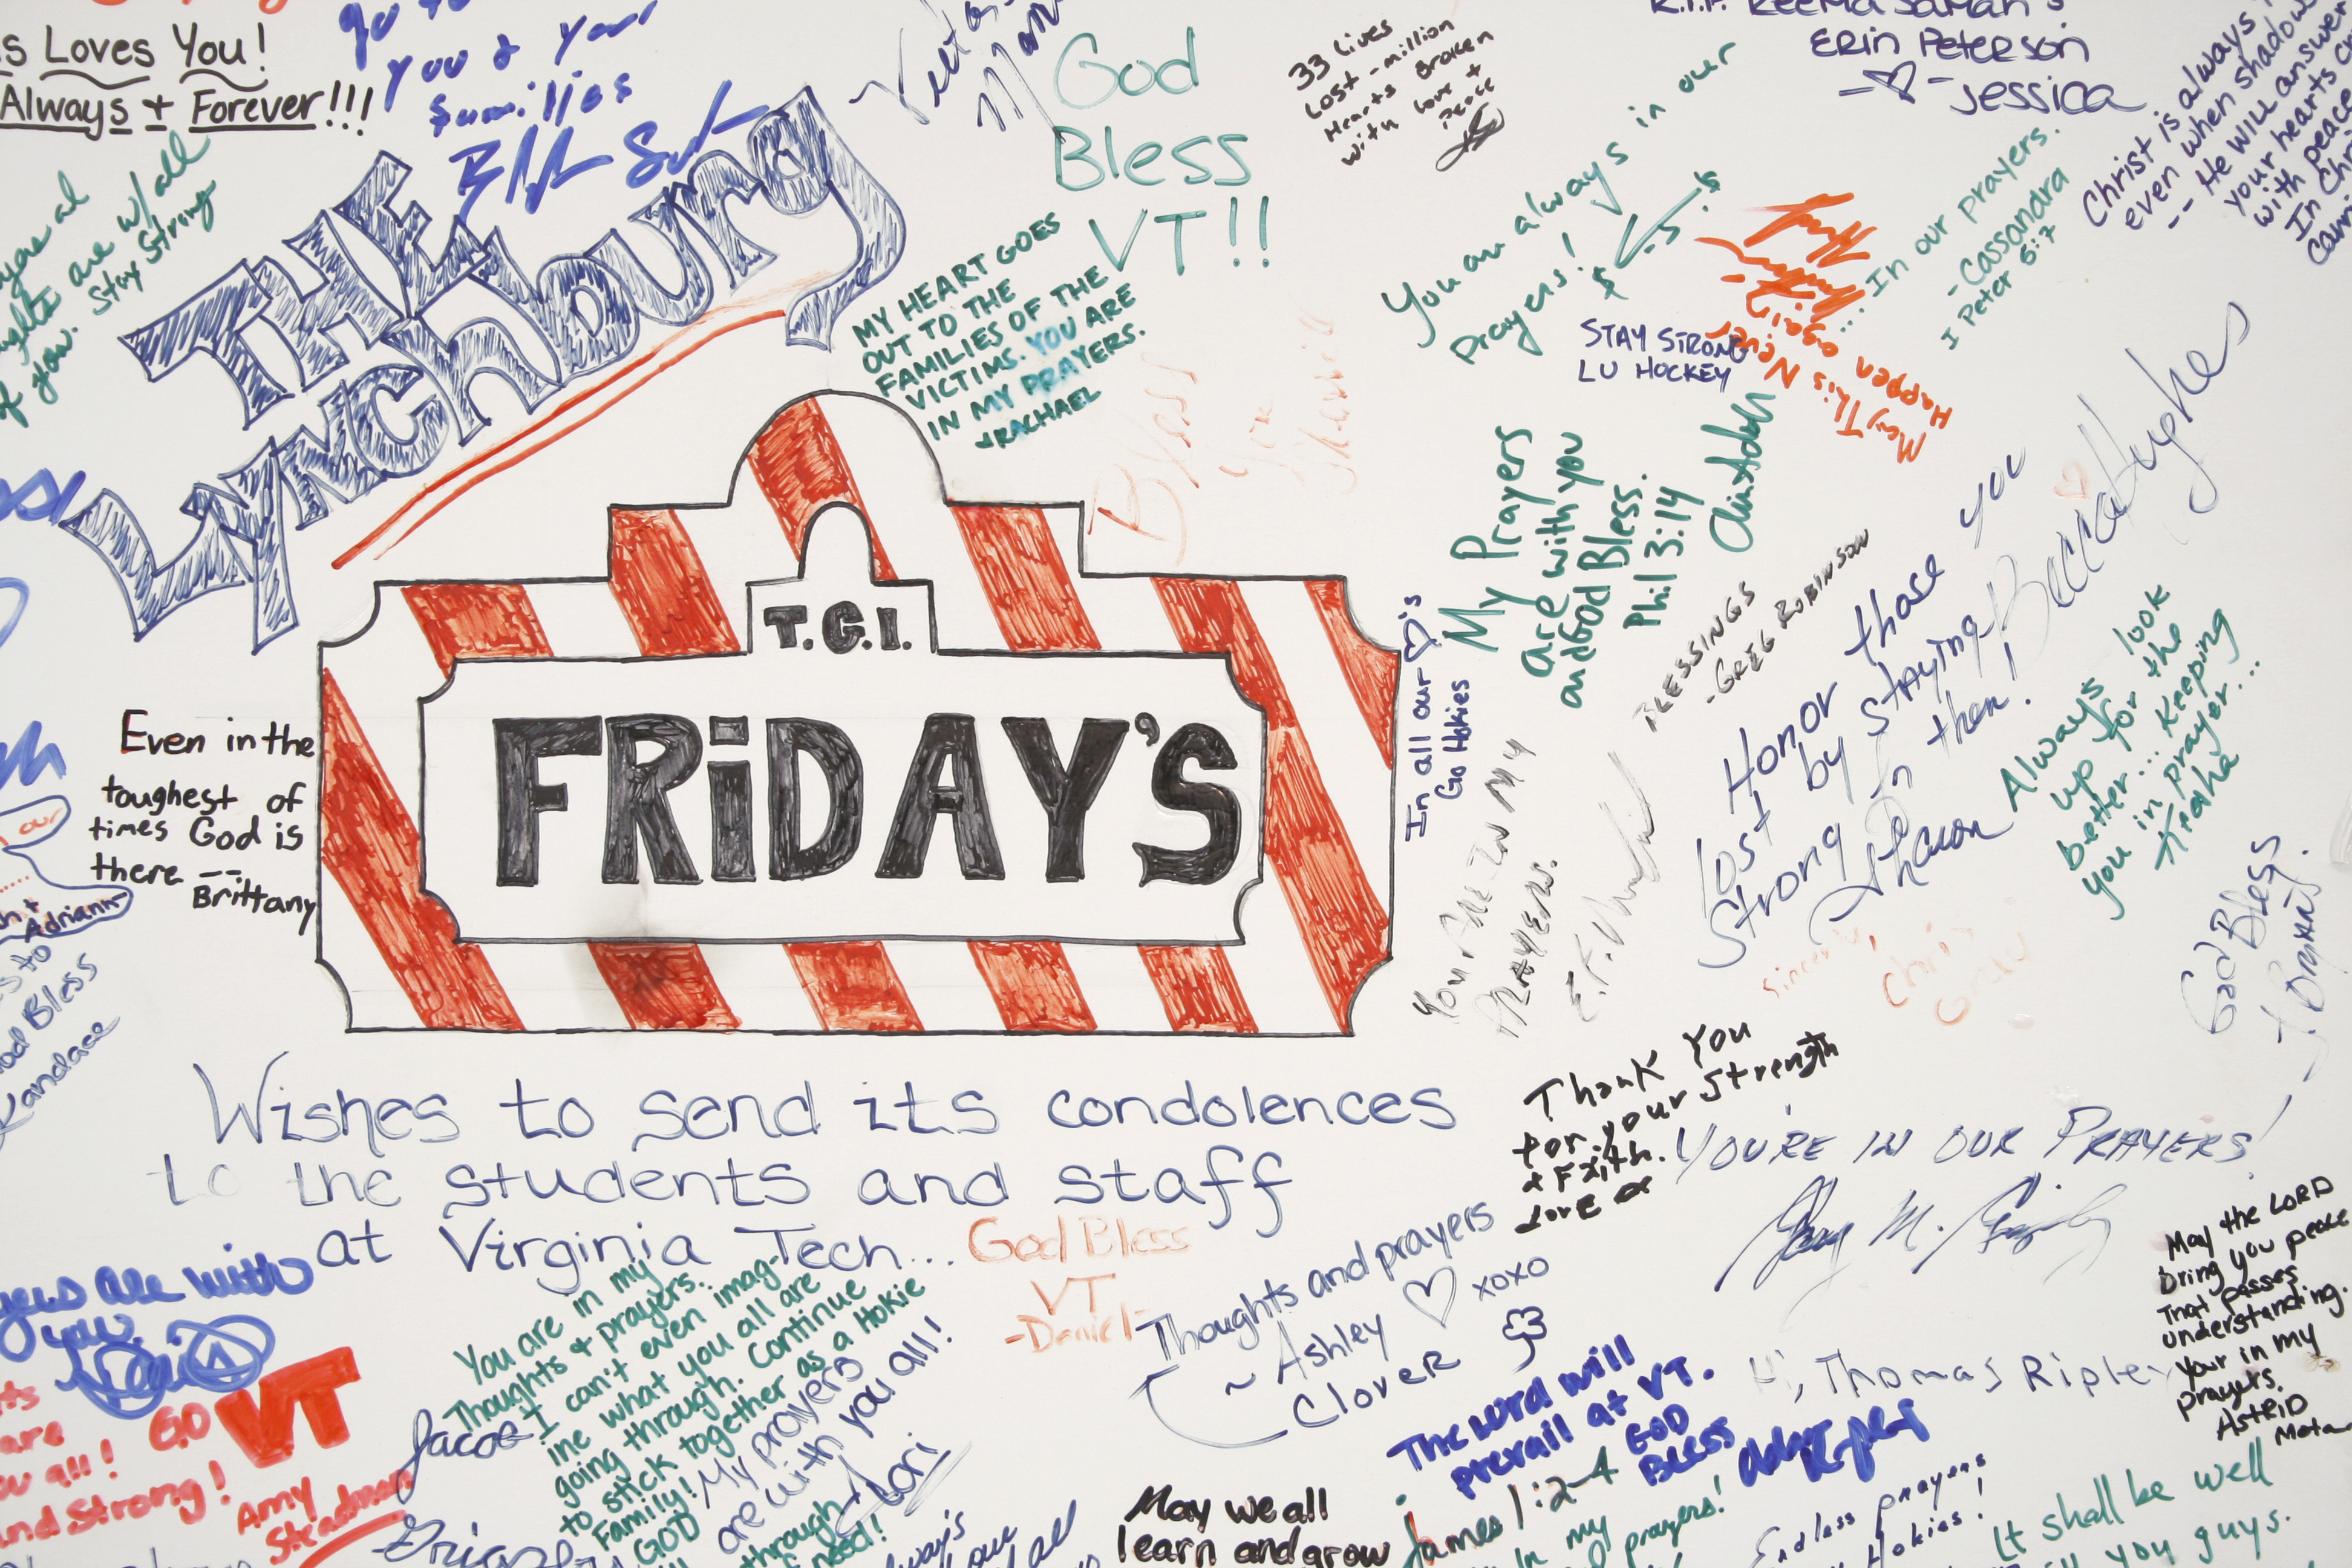 s Loves You!
Always + Forever!!!
you & your
families
are w/all
Stay Strong
THE
Lynchburg
T.G.I.
FRiDAY'S
Wishes to send its condolences
to the students and staff
at Virginia Tech...
God
Bless
VT!!
MY HEART GOES
OUT TO THE
FAMILIES OF THE
VICTIMS. YOU ARE
IN MY PRAYERS.
RACHAEL
33 lives
Lost - million
Hearts Broken
with love +
Peace
You are always in our
prayers!
Erin Peterson
Jessica
Christ is always
even when shadow
-- He will answer
your hearts
with peace
In Chri
...In our prayers.
-Cassandra
I Peter 5:7
STAY STRONG
LU HOCKEY
May This Never
Happen again
Bless
My Prayers
are with you
and God Bless.
Phil 3:14
BLESSINGS
-GREG ROBINSON
In all our ♡'s
Go Hokies
Your Are In My
PRAYERS.
Honor those you
lost by staying
Strong in them!
Sharon
Becca Hughes
Always look
up for the
better... Keeping
you in prayer...
God Bless
Even in the
toughest of
times God is
there --
Brittany
our
Adriann
God Bless
Kandace
Thank You
for your Strength
& Faith.
Love
YOU'RE IN OUR PRAYERS!
God Bless
VT
-Daniel
Thoughts and prayers
~ Ashley ♡ xoxo
Clover
May the LORD
bring you peace
That passes
understanding.
Your in my
prayers.
Astrid
Mota
are with
you.
GO VT
are
all!
and Strong!
Amy
Steadman
Jacob
You are in my
Thoughts & prayers.
I can't even imag-
ine what you all are
going through. Continue
to stick together as a Hokie
Family!
GOD
through
need!
My prayers
are with you all!
Lori
The Lord will
prevail at VT.
GOD
Bless
Thomas Ripley
James 1:2-4
May we all
learn and grow
In my
prayers!
Endless prayers
Hokies!
It shall be well
you guys.